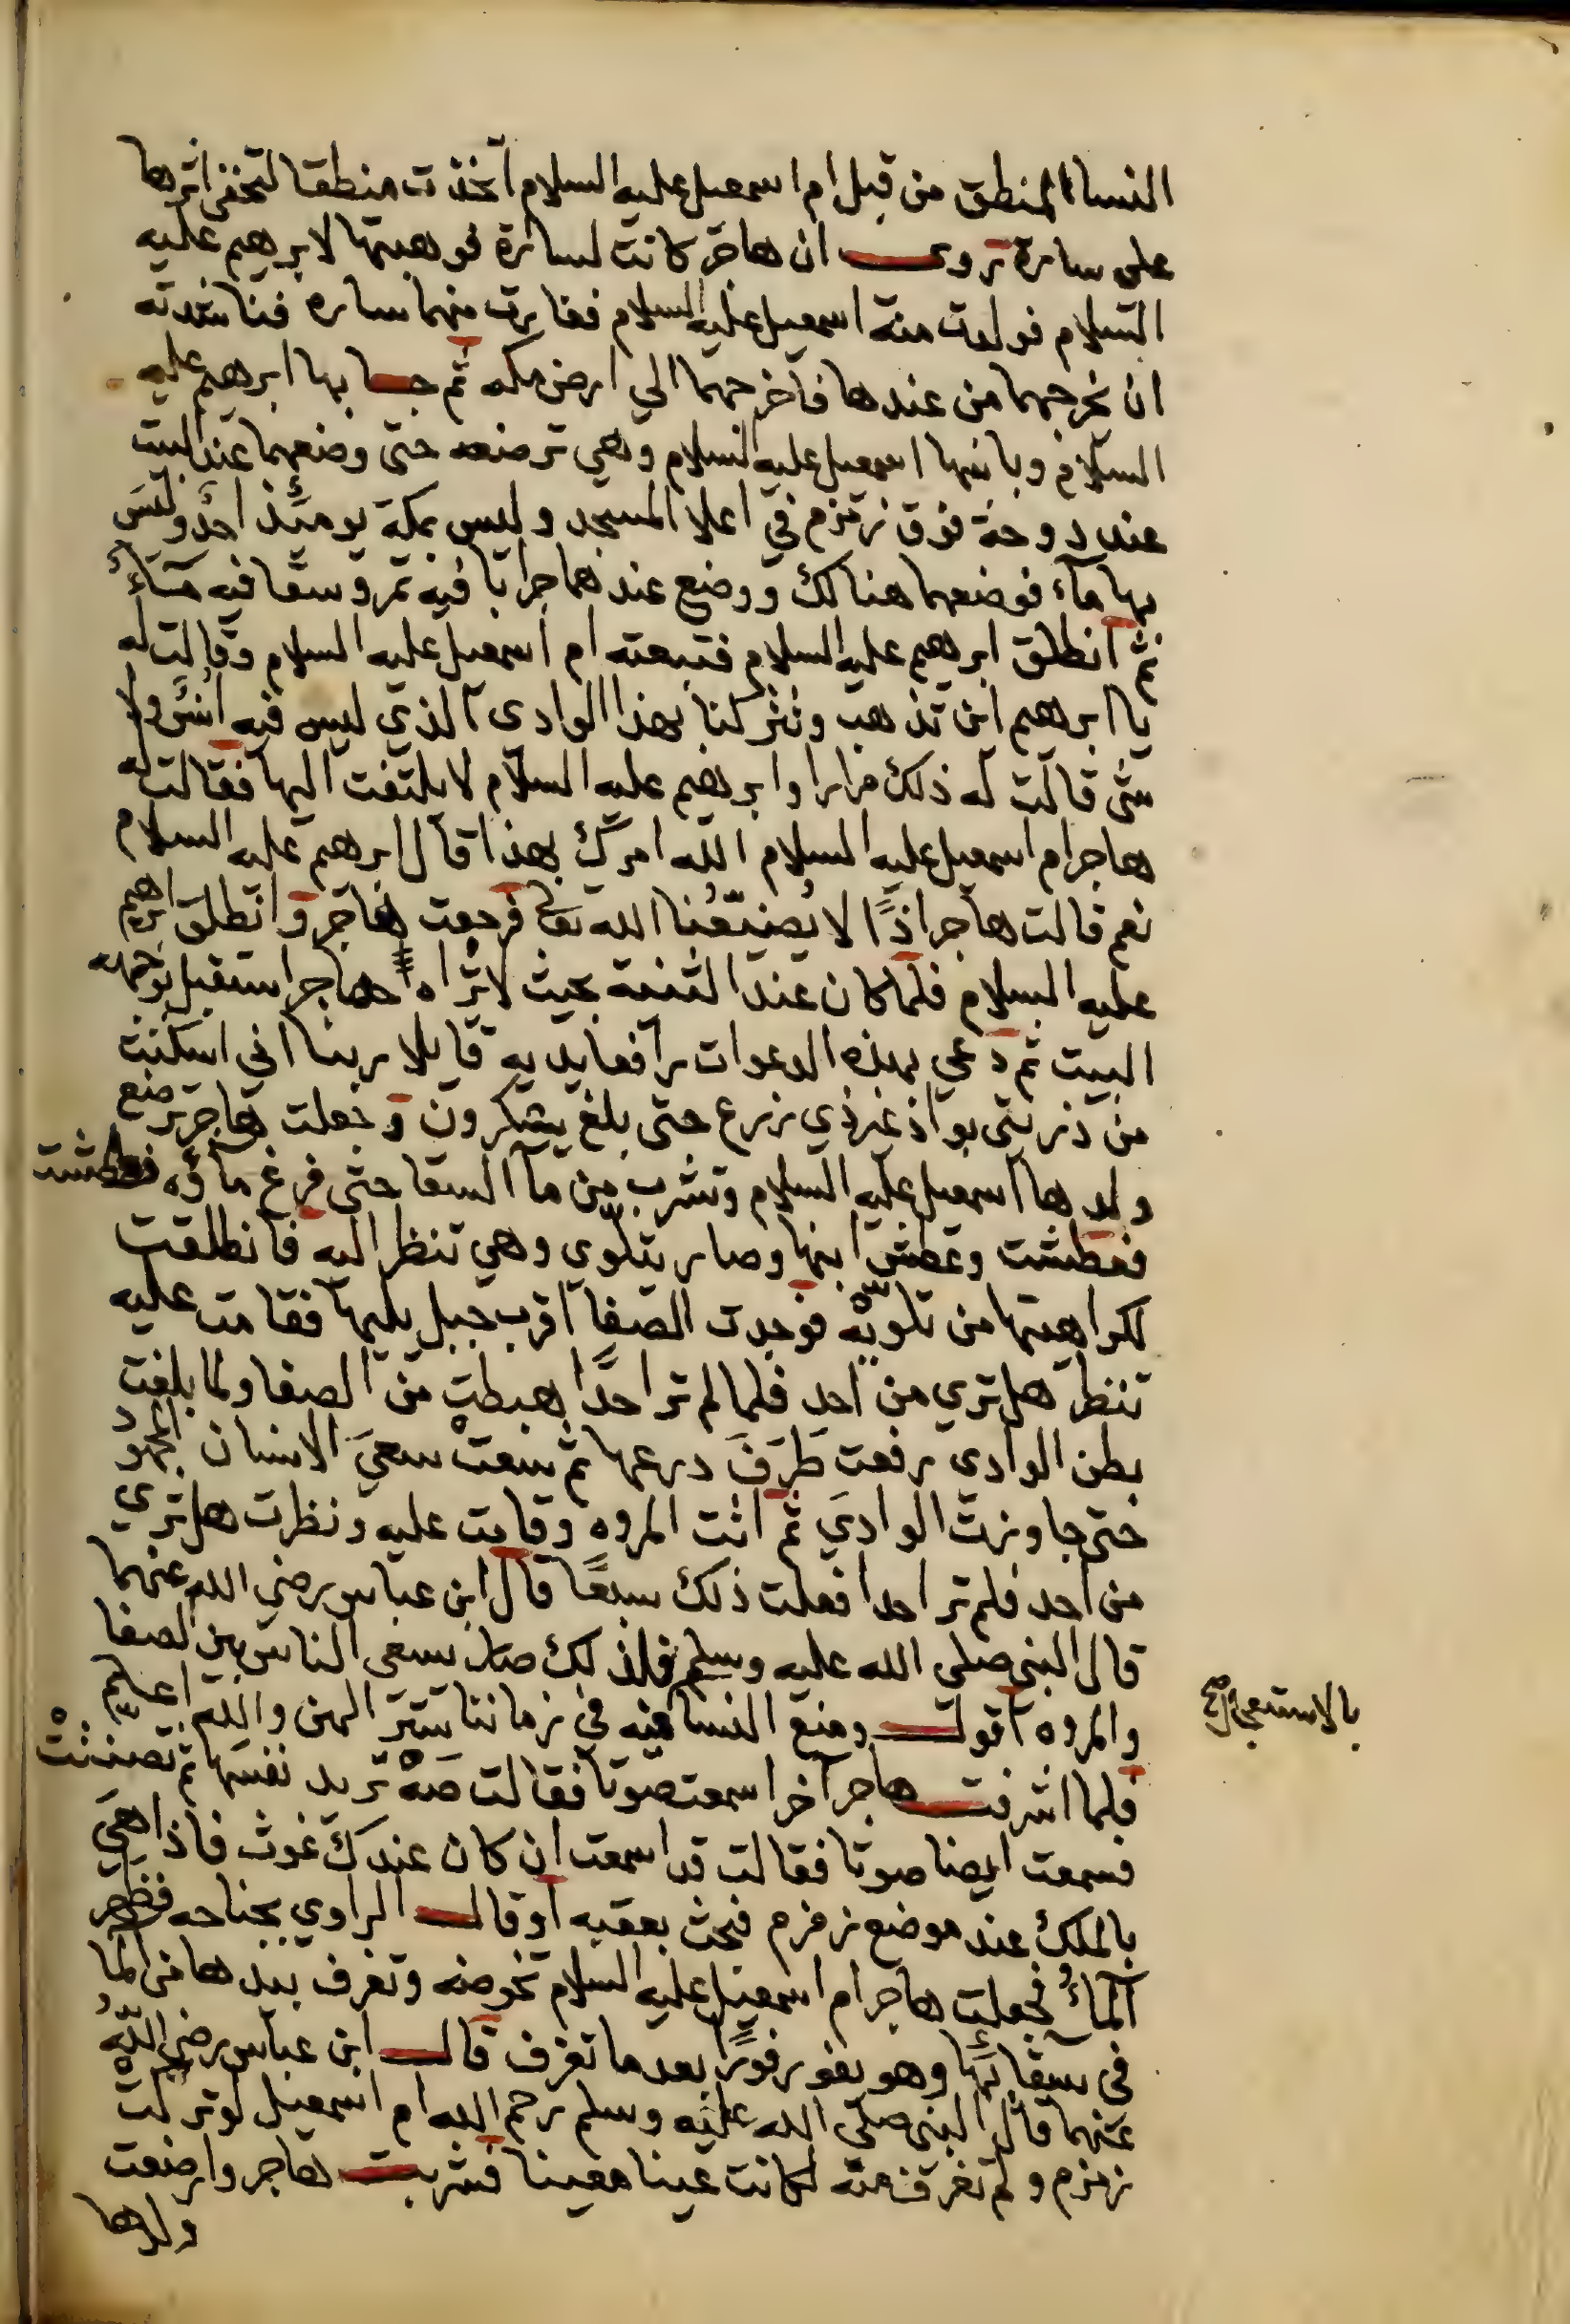 النسا المنطق من قبل ام اسمعيل عليه السلام اتخذت منطقا لتخفى اثرها
على سارة روى ان هاجر كانت لسارة فوهبتها لابرهيم عليه
السلام فولدت منه اسمعيل عليه السلام فغارت منهما ساره فناشدته
ان يخرجهما من عندها فاخرجهما الي ارض مكه ثم جا بها ابرهيم عليه
السلام وبابنها اسمعيل عليه السلام وهي ترضعه حتى وضعهما عند البيت
عند دوحة فوق زمزم في اعلا المسجد وليس بمكة يومئذ احد وليس
بها مآء فوضعهما هنالك ووضع عندهما جرابا فيه تمر وسقا فيه مآء
ثم انطلق ابرهيم عليه السلام فتبعته ام اسمعيل عليه السلام وقالت له
يا ابرهيم اين تذهب وتتركنا بهذا الوادى الذي ليس فيه انس ولا
شى قالت له ذلك مرارا وابرهيم عليه السلام لا يلتفت اليها فقالت له
هاجر ام اسمعيل عليه السلام الله امرك بهذا قال ابرهيم عليه السلام
نعم قالت هاجر اذًا لا يُضيّعُنا الله تعالى فرجعت هاجر وانطلق ابرهيم
عليه السلام فلما كان عند الثنية بحيث لا تراه هاجر استقبل بوجهه
البيت ثم دعي بهذه الدعوات رافعا يديه قايلا ربنا اني اسكنت
من ذريتى بواد غير ذي زرع حتى بلغ يشكرون وجعلت هاجر ترضع
ولدها اسمعيل عليه السلام وتشرب من مآ السقا حتى فرغ مآؤه
فعطشت وعطش ابنها وصار يتلوّي وهي تنظر اليه فانطلقت
لكراهيتها من تلويّه فوجدت الصفا اقرب جبل يليها فقامت عليه
تنظر هل تري من احد فلما لم تر احدًا هبطت من الصفا ولما بلغت
بطن الوادي رفعت طَرَفَ درعها ثم سعتْ سعيَ الانسان المجهود
حتى جاوزت الوادي ثم اتت المروه وقامت عليه ونظرت هل تري
من احد فلم تر احدا فعلت ذلك سبعًا قال ابن عباس رضي الله عنهما
قال النبى صلى الله عليه وسلم فلذلك صار يسعى الناس بين الصفا
والمروه اقول ومنع النسا منه في زماننا ستر لهن والله اعلم
بالاستعمال صح
فلما اشرفت هاجر آخرا سمعت صوتا فقالت صَهْ تريد نفسها ثم تصنتتْ
فسمعت ايضا صوتا فقالت قد اسمعت ان كان عندك غوث فاذا هي
بالملك عند موضع زمزم فبحث بعقبه او قال الراوي بجناحه فظهر
المآءُ فجعلت هاجر ام اسمعيل عليه السلام تحوضه وتغرف بيدها من الما
في سقائها وهو يفور فورًا بعد ما تغرف قال ابن عباس رضي اللهُ
عنهما قال النبى صلى الله عليه وسلم رحم الله ام اسمعيل لو تركت
زمزم ولم تغرف منه لكانت عينا معينا فشربت هاجر وارضعت
ولدها